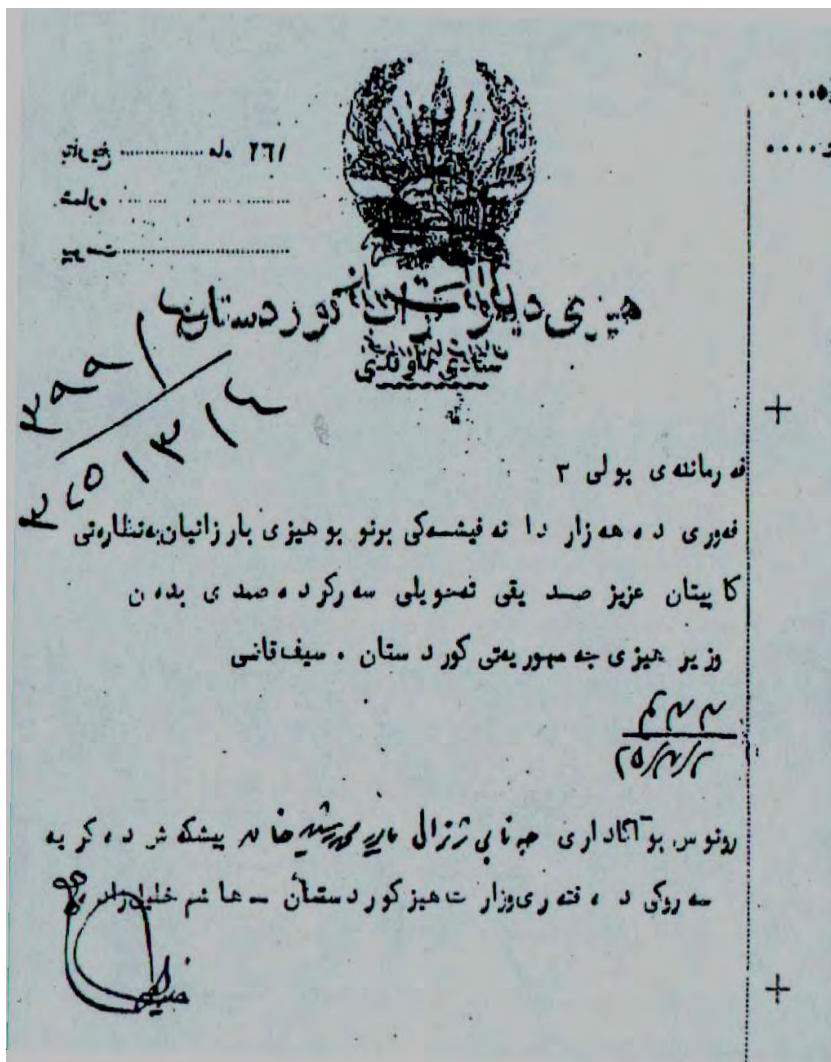 تاریخ ............ ماه ۲۶۱
شماره
پیوست
هیزی دیموکراتی کوردستان
ستادی ناوندی
۳۸۸۱
۲۵/۳/۱٤
فه رمانده ی پولی ۳
فه‌وری ده هه زار دا نه فیشه‌کی برنو بو هیزی بارزانیان به‌نظاره‌تی
کا پیتان عزیز صد یقی ته‌نویلی سه رکرده صمد ی بده ن
وزیر هیزی جه مهوریه‌تی کورد ستان . سیف قاضی
۲۵/۳/۲
رونوس بو آگاداری جه نا بی ژنرال خان پیشکه ش ده کریه
سه روکی د ه فته ری‌وزارت هیز کورد ستان ــ ها شم خلیل‌زاده